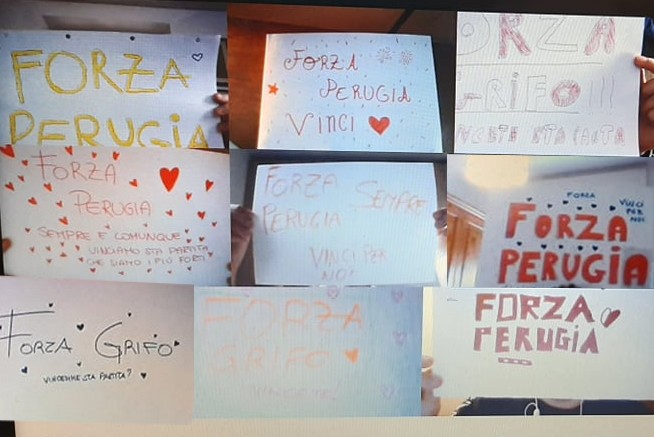 FORZA
PERUGIA
FORZA
PERUGIA
VINCI
FORZA
GRIFO!!!
STA
FORZA
PERUGIA
SEMPRE E COMUNQUE
VINCIAMO STA PARTITA
CHE SIAMO I PIÙ FORTI
FORZA SEMPRE
PERUGIA
VINCI PER
NOI
FORZA
VINCI
PER
NOI
FORZA
PERUGIA
FORZA GRIFO
STA PARTITA?
FORZA
GRIFO
FORZA
PERUGIA